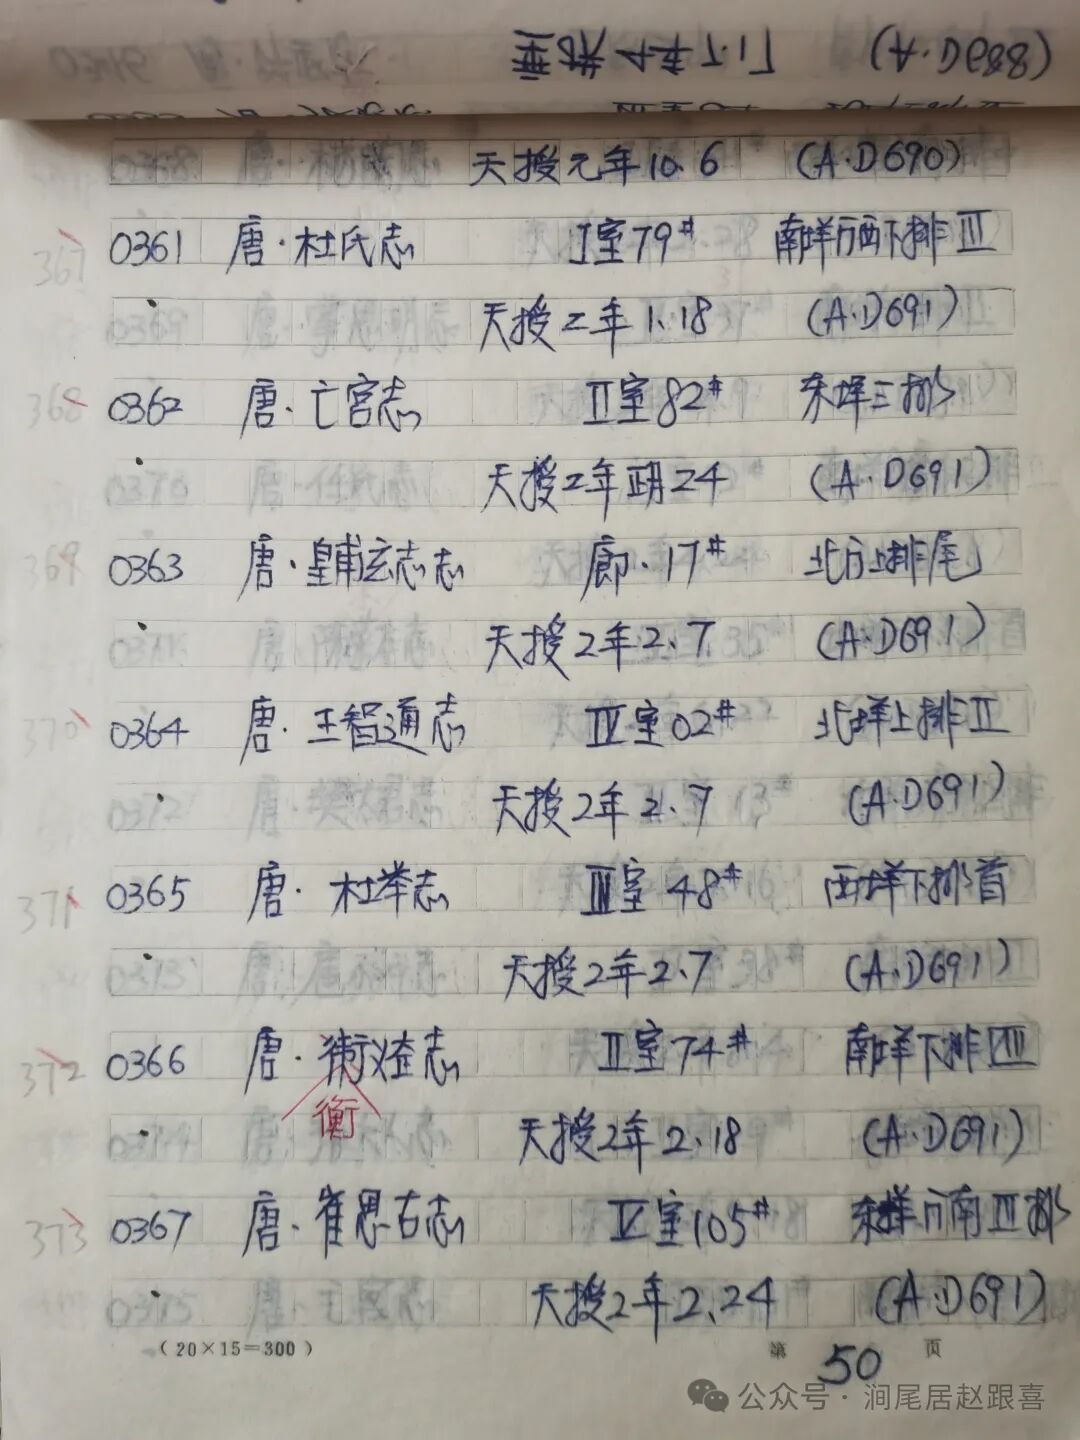 (A.D688)
天授元年10.6 (A.D690)
367 0361 唐·杜氏志 I室79# 南垟门西下排III
天授二年1.18 (A.D691)
368 0362 唐·亡宫志 II室82# 东垟三排
天授2年正月24 (A.D691)
369 0363 唐·皇甫玄志志 廊·17# 北门上排尾
天授2年2.7 (A.D691)
370 0364 唐·王智通志 IV室02# 北垟上排II
天授2年2.7 (A.D691)
371 0365 唐·杜举志 III室48# 西垟下排首
天授2年2.7 (A.D691)
372 0366 唐·衡义整志 II室74# 南垟下排
衡
天授2年2.18 (A.D691)
373 0367 唐·崔思古志 V室105# 东垟门南III排
天授2年2.24 (A.D691)
(20×15=300) 第50页
公众号·涧尾居赵跟喜